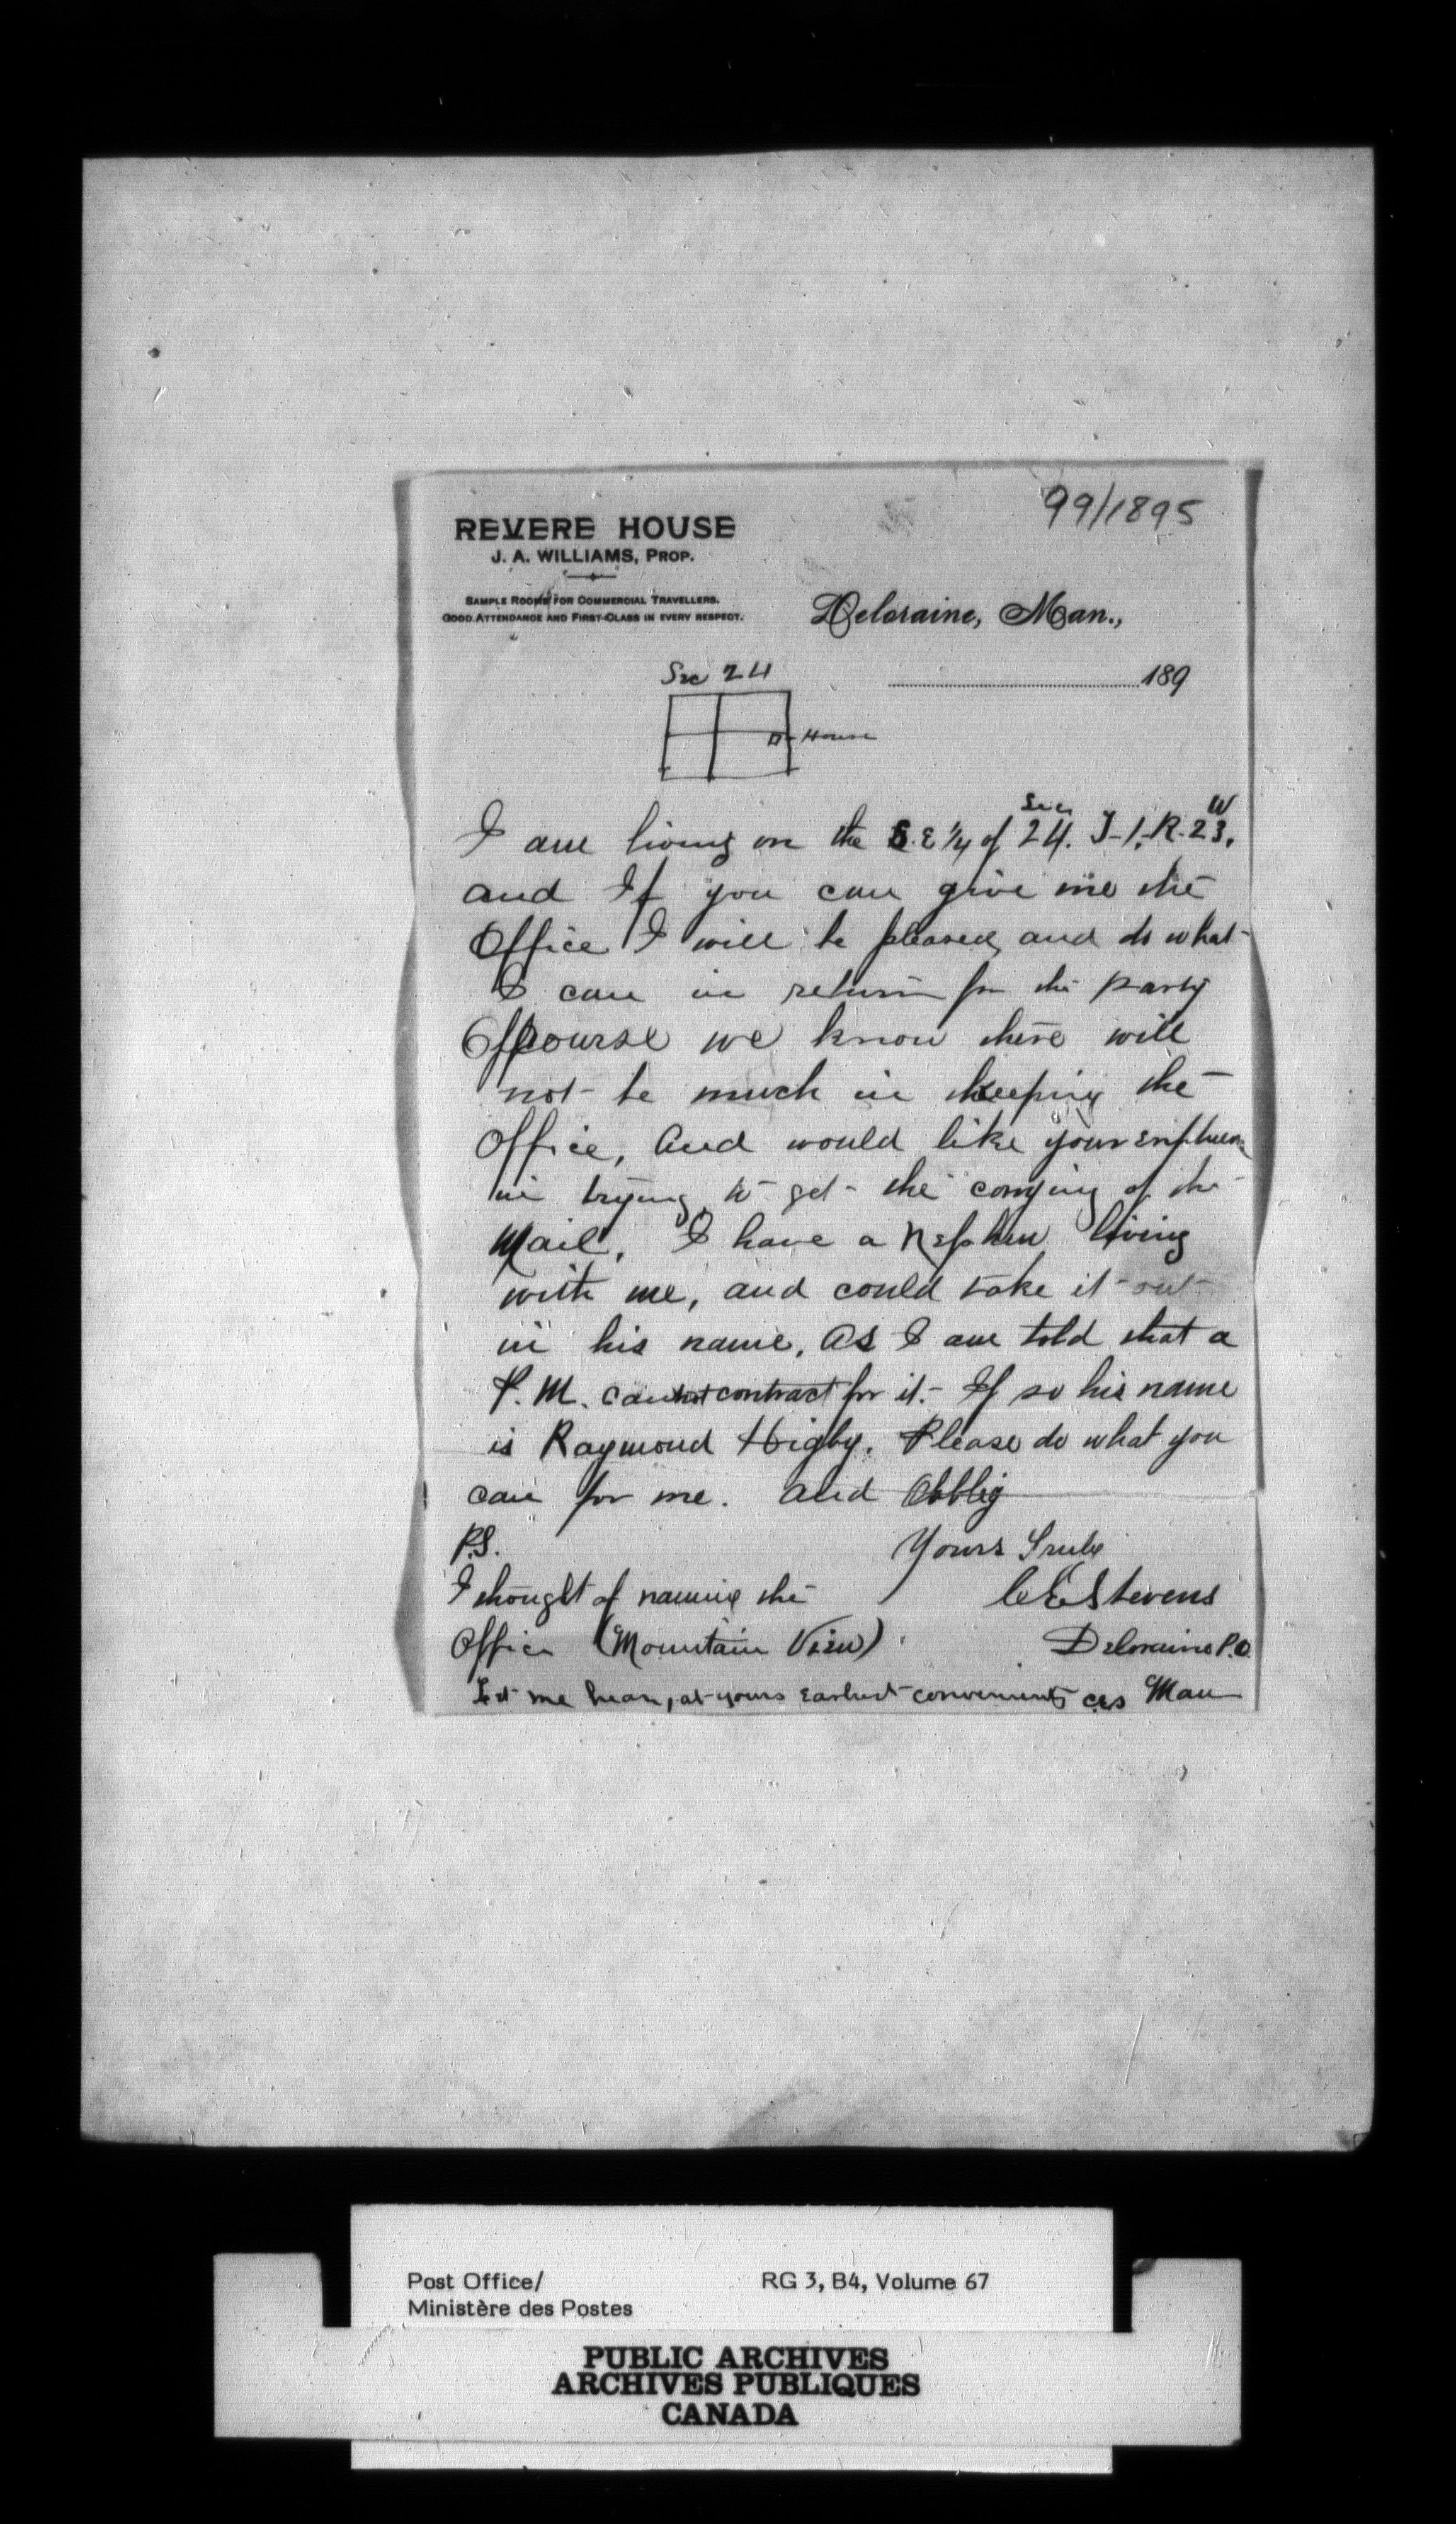 99/1895
REVERE HOUSE
J. A. WILLIAMS, PROP.
SAMPLE ROOMS FOR COMMERCIAL TRAVELLERS.
GOOD ATTENDANCE AND FIRST-CLASS IN EVERY RESPECT.
Deloraine, Man.,
189
Sec 24
House
I am living on the S.E ¼ of Sec 24. T-1. R-23. W
and If you can give me the
Office I will be pleased, and do what
I can in return for the party
Offcourse we know there will
not be much in keeping the
Office, And would like your
in trying to get the carrying of the
Mail. I have a Nephew living
with me, and could take it out
in his name, As I am told that a
P. M. cannot contract for it. If so his name
is Raymond Higby. Please do what you
can for me. And Obblig
P.S.
Yours Truly
I thought of naming the
C E Stevens
Office (Mountain View)
Deloraine P.O.
Let me hear, at yours earliest convenients CES Man
Post Office/
Ministère des Postes
RG 3, B4, Volume 67
PUBLIC ARCHIVES
ARCHIVES PUBLIQUES
CANADA